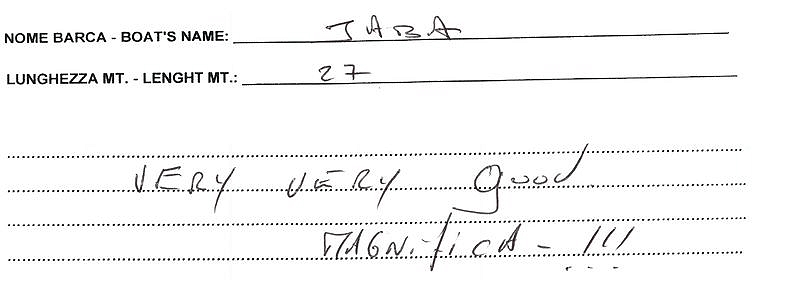 NOME BARCA - BOAT'S NAME: JABA
LUNGHEZZA MT. - LENGHT MT.: 27
VERY VERY good
MAGNifiCA - !!!